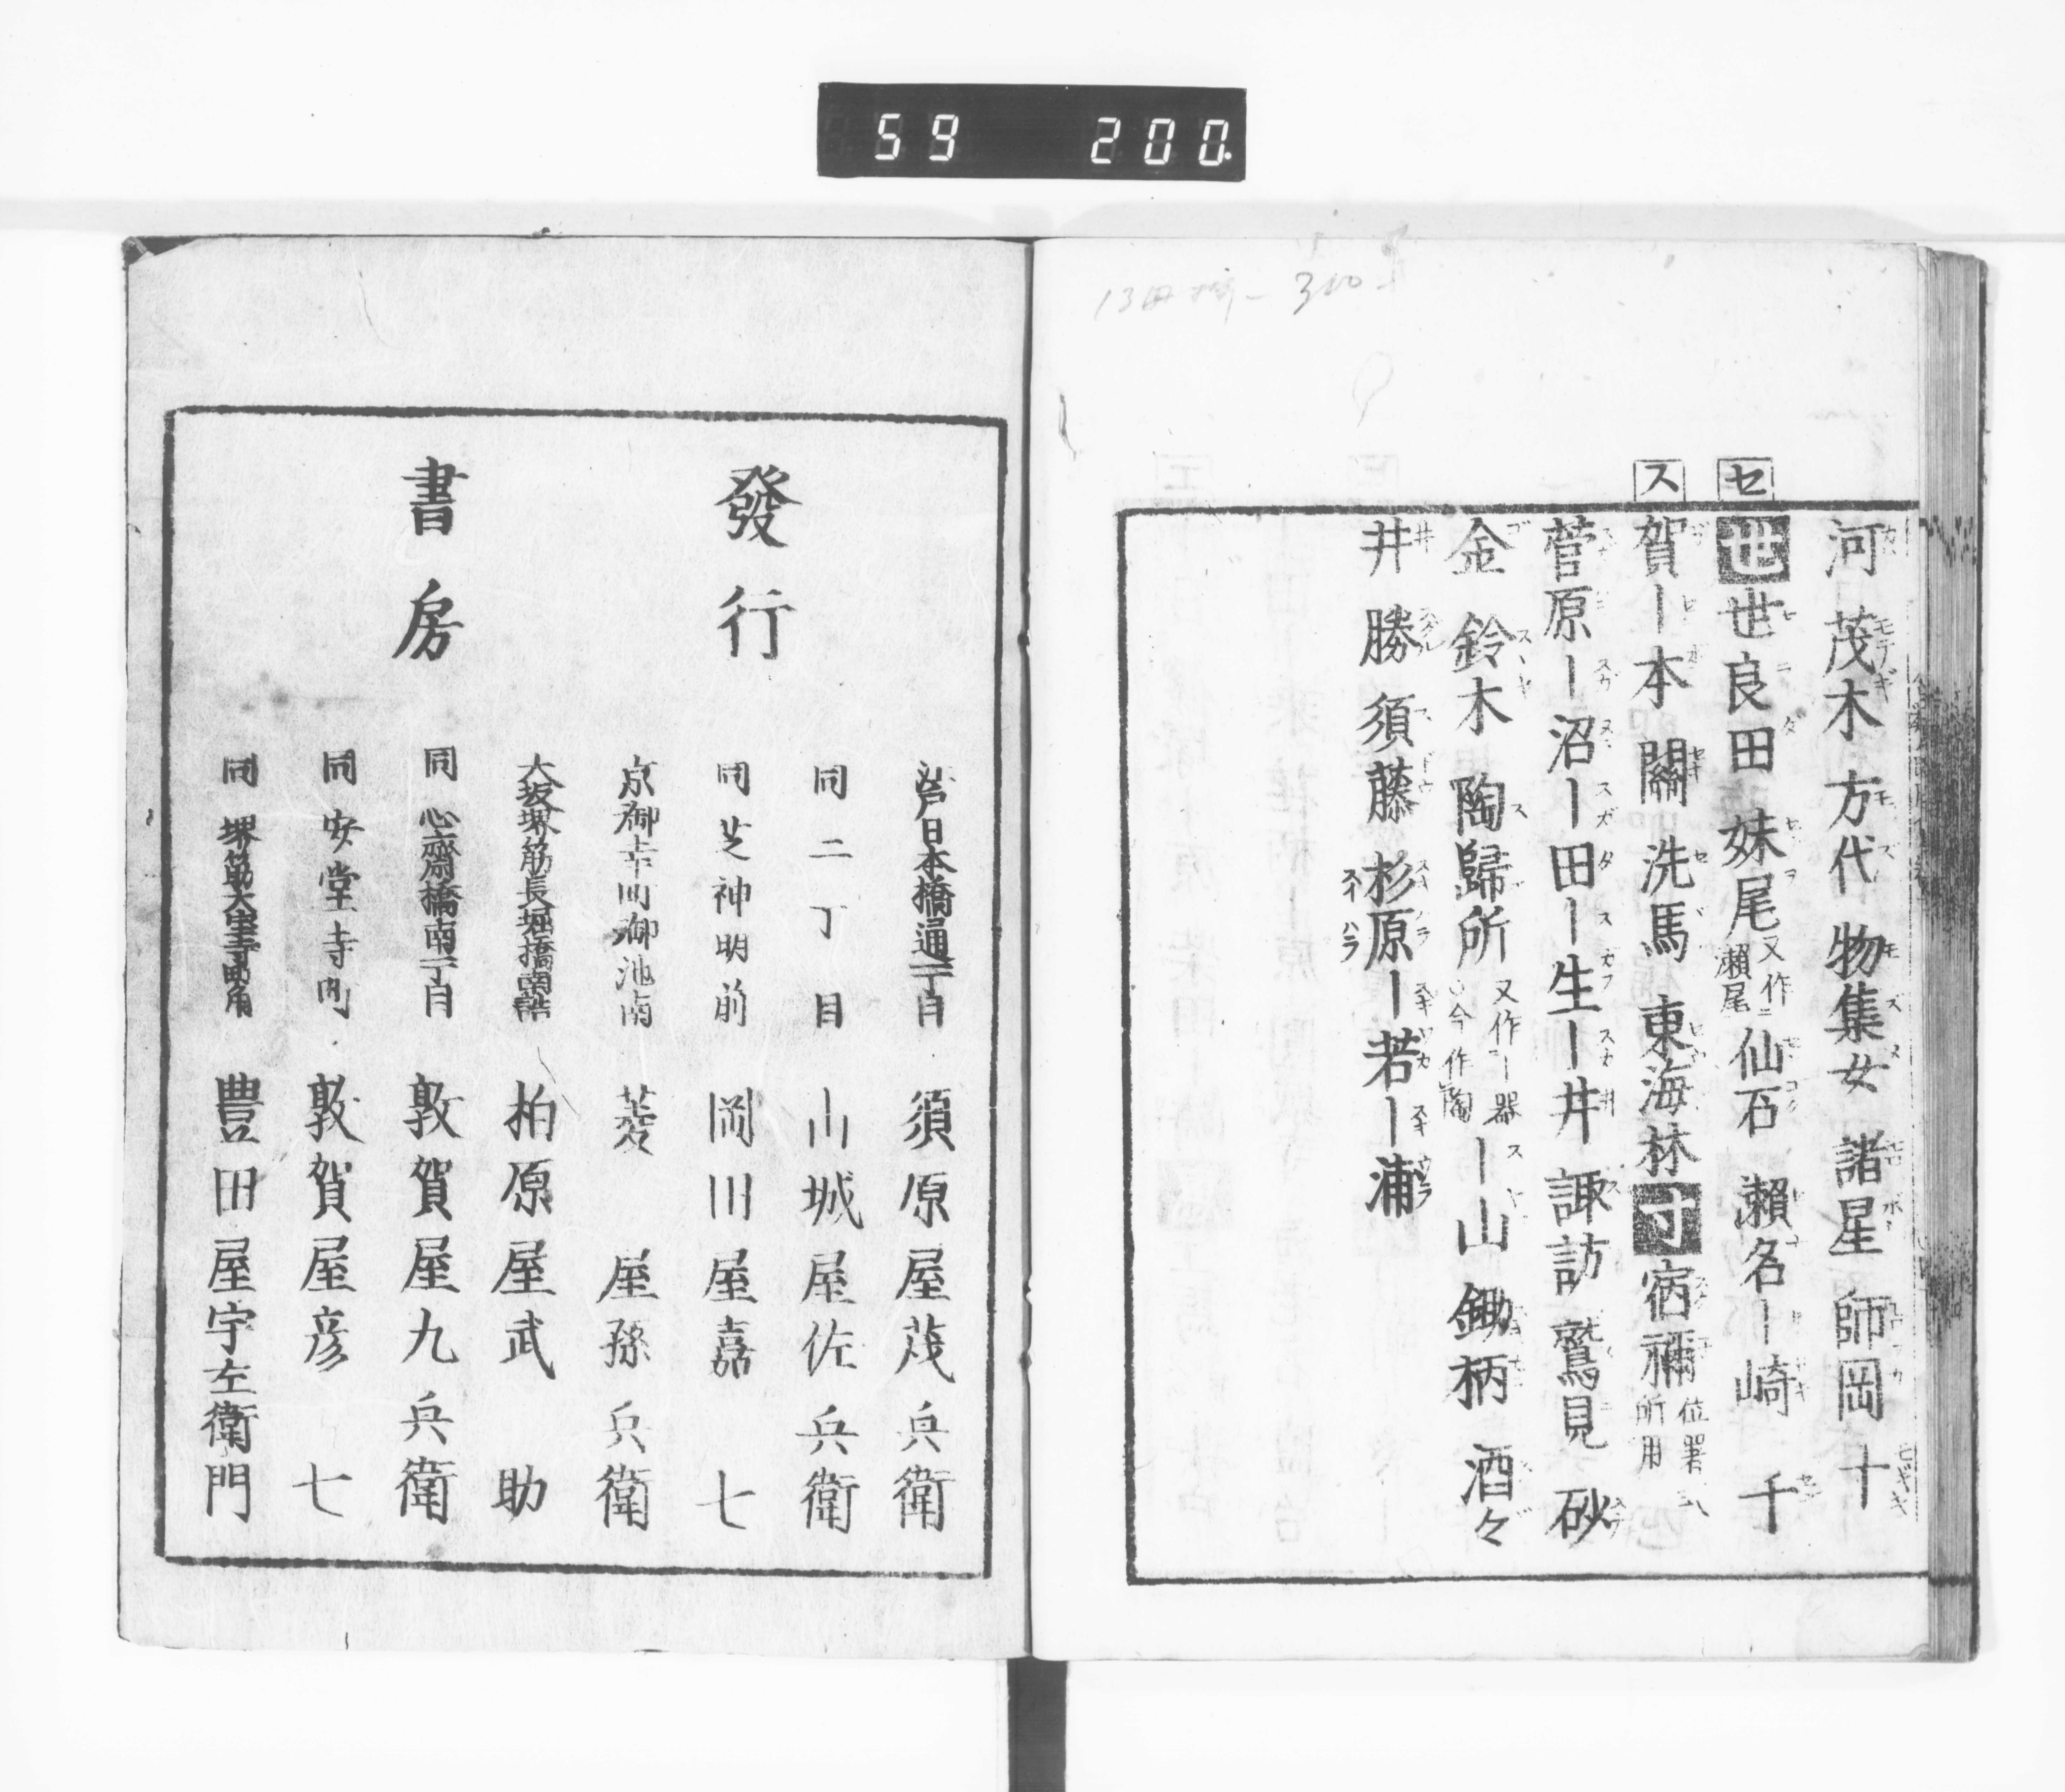 59 200
セ
ス
河 茂木 方代 物集女 諸星 師岡 十
世 世良田 妹尾 又作瀬尾 仙石 瀬名 ー崎 千
賀 ー本 關 洗馬 東海林 寸 宿禰 位署式所用
菅原 ー沼 ー田 ー生 ー井 諏訪 鷲見 砂
金 鈴木 陶 歸所 又作ー器今作陶 ー山 鋤柄 酒々
井 勝 須藤 杉原 ー若 ー浦
發行
書房
江戸日本橋通一丁目 須原屋茂兵衛
同二丁目 山城屋佐兵衛
同芝神明前 岡田屋嘉七
京御幸町御池南 菱屋孫兵衛
大坂堺筋長堀橋南詰 柏原屋武助
同心齋橋南一丁目 敦賀屋九兵衛
同安堂寺町 敦賀屋彦七
同堺筋大寶寺町角 豊田屋宇左衛門